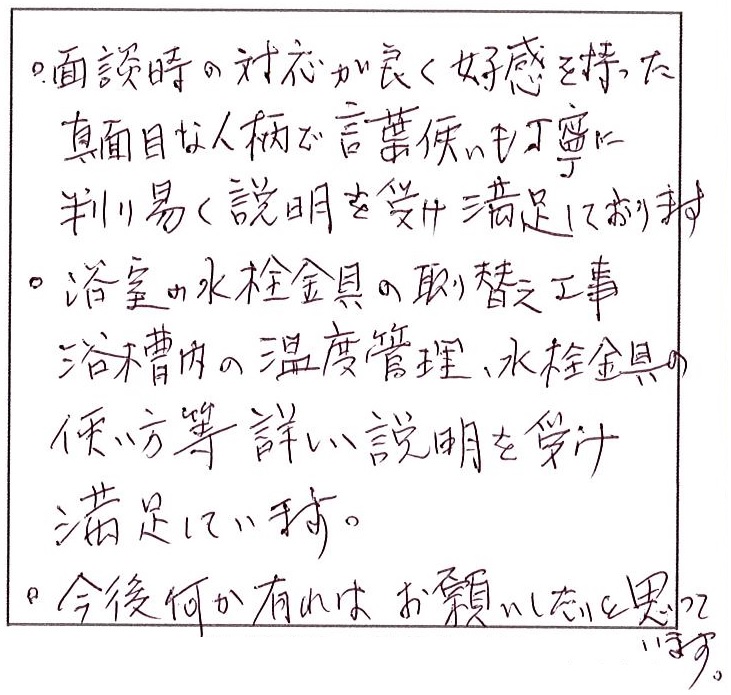 ○面談時の対応が良く好感を持った
真面目な人柄で言葉使いも丁寧に
判り易く説明を受け満足しております
○浴室の水栓金具の取り替え工事
浴槽内の温度管理、水栓金具の
使い方等詳しい説明を受け
満足しています。
○今後何か有れば お願いしたいと思って
います。